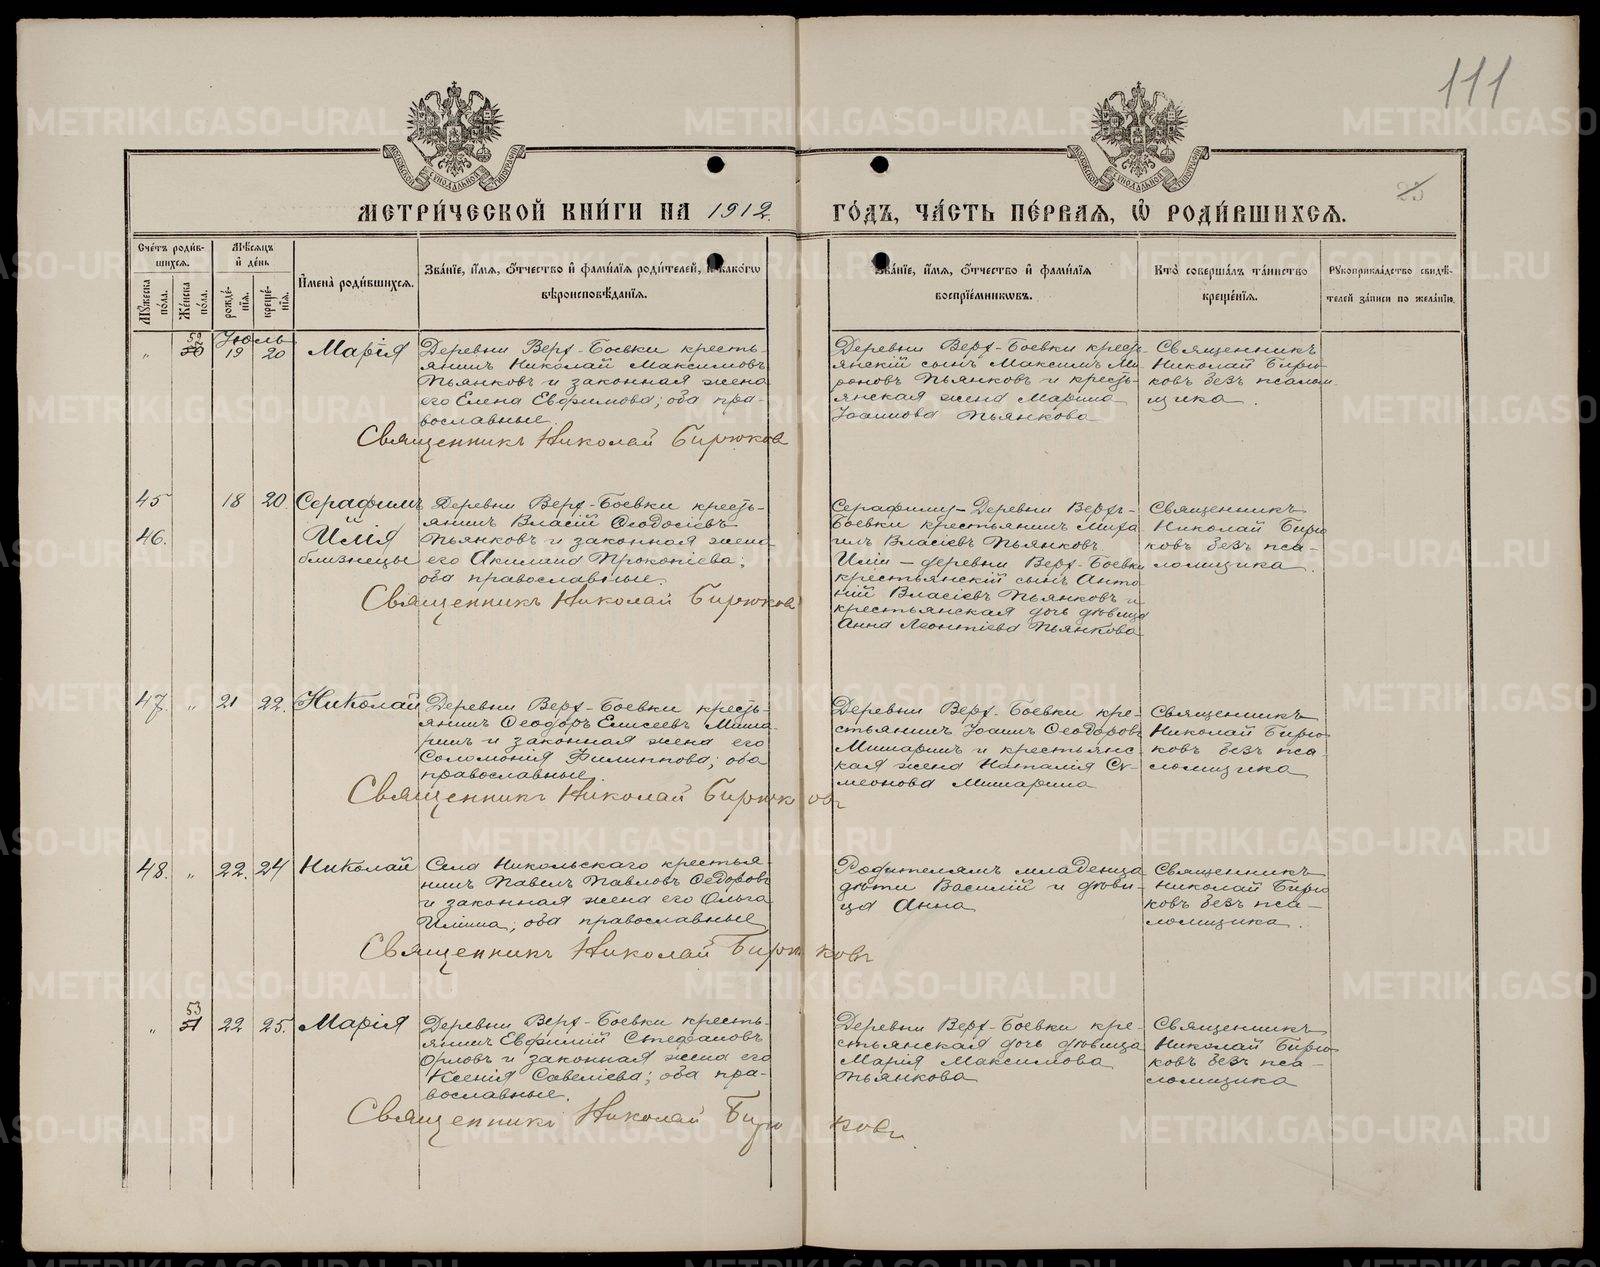 111
25
МЕТРИ́ЧЕСКОЙ КНИ́ГИ НА 1912
ГО́ДЪ, ЧА́СТЬ ПЕ́РВАЯ, Ѡ РОДИ́ВШИХСЯ.
Сче́тъ роди́в-
шихся.
Мꙋ́жеска по́ла.
Же́нска по́ла.
Мѣ́сяцъ и де́нь
рожде́-
нїя.
креще́-
нїя.
И̓мена̀ роди́вшихся.
Зва́нїе, и́мя, ѻ́тчество и фами́лїя роди́телей, и како́гѡ
вѣроисповѣ́данїя.
Зва́нїе, и́мя, ѻ́тчество и фами́лїя
воспрїе́мниковъ.
Кто̀ соверша́лъ та́инство
креще́нїя.
Рꙋкоприкла́дство свидѣ́-
телей за́писи по жела́нїю.
Іюль
„ 52 50 19 20 Марія
Деревни Верх-Боевки кресть-
янинъ Николай Максимовъ
Пьянковъ и законная жена
его Елена Евфимова; оба пра-
вославные.
Священникъ Николай Бирюковъ
Деревни Верх-Боевки кресть-
янскій сынъ Максимъ Ми-
роновъ Пьянковъ и кресть-
янская жена Марина
Іоаннова Пьянкова
Священникъ
Николай Бирю-
ковъ безъ псалом-
щика.
45 18 20 Серафимъ
46. Илія
близнецы
Деревни Верх-Боевки кресть-
янинъ Власій Ѳеодосіевъ
Пьянковъ и законная жена
его Акилина Прокопіева;
оба православные.
Священникъ Николай Бирюковъ
Серафиму – Деревни Верхъ-
Боевки крестьянинъ Миха-
илъ Власіевъ Пьянковъ
Иліи – деревни Верх-Боевки
крестьянскій сынъ Анто-
ній Власіевъ Пьянковъ и
крестьянская дочь дѣвица
Анна Леонтіева Пьянкова
Священникъ
Николай Бирю-
ковъ безъ пса-
ломщика.
47. „ 21 22. Николай
Деревни Верх-Боевки кресть-
янинъ Ѳеодоръ Елисеевъ Миша-
ринъ и законная жена его
Соломонія Филиппова; оба
православные.
Священникъ Николай Бирюковъ
Деревни Верх-Боевки кре-
стьянинъ Іоаннъ Ѳеодоровъ
Мишаринъ и крестьянс-
кая жена Наталія Си-
меонова Мишарина
Священникъ
Николай Бирю-
ковъ безъ пса-
ломщика
48. „ 22. 24 Николай
Села Никольскаго крестья-
нинъ Павелъ Павловъ Ѳедоровъ
и законная жена его Ольга
Иліина; оба православные
Священникъ Николай Бирюковъ
Родителямъ младенца
дѣти Василій и дѣви-
ца Анна
Священникъ
Николай Бирю-
ковъ безъ пса-
ломщика.
„ 53 51 22 25. Марія
Деревни Верх-Боевки кресть-
янинъ Евфимій Стефановъ
Орловъ и законная жена его
Ксенія Савеліева; оба пра-
вославные.
Священникъ Николай Бирюковъ
Деревни Верх-Боевки кре-
стьянская дочь дѣвица
Марія Максимова
Пьянкова
Священникъ
Николай Бирю-
ковъ безъ пса-
ломщика